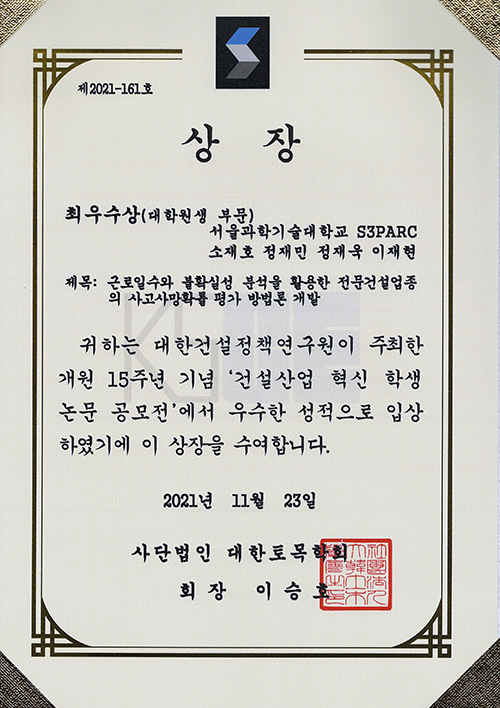 제2021-161호
상 장
최우수상(대학원생 부문)
서울과학기술대학교 S3PARC
소재호 정재민 정재욱 이재현
제목: 근로일수와 불확실성 분석을 활용한 전문건설업종
의 사고사망확률 평가 방법론 개발
귀하는 대한건설정책연구원이 주최한
개원 15주년 기념 '건설산업 혁신 학생
논문 공모전'에서 우수한 성적으로 입상
하였기에 이 상장을 수여합니다.
2021년 11월 23일
사단법인 대한토목학회
회장 이승호